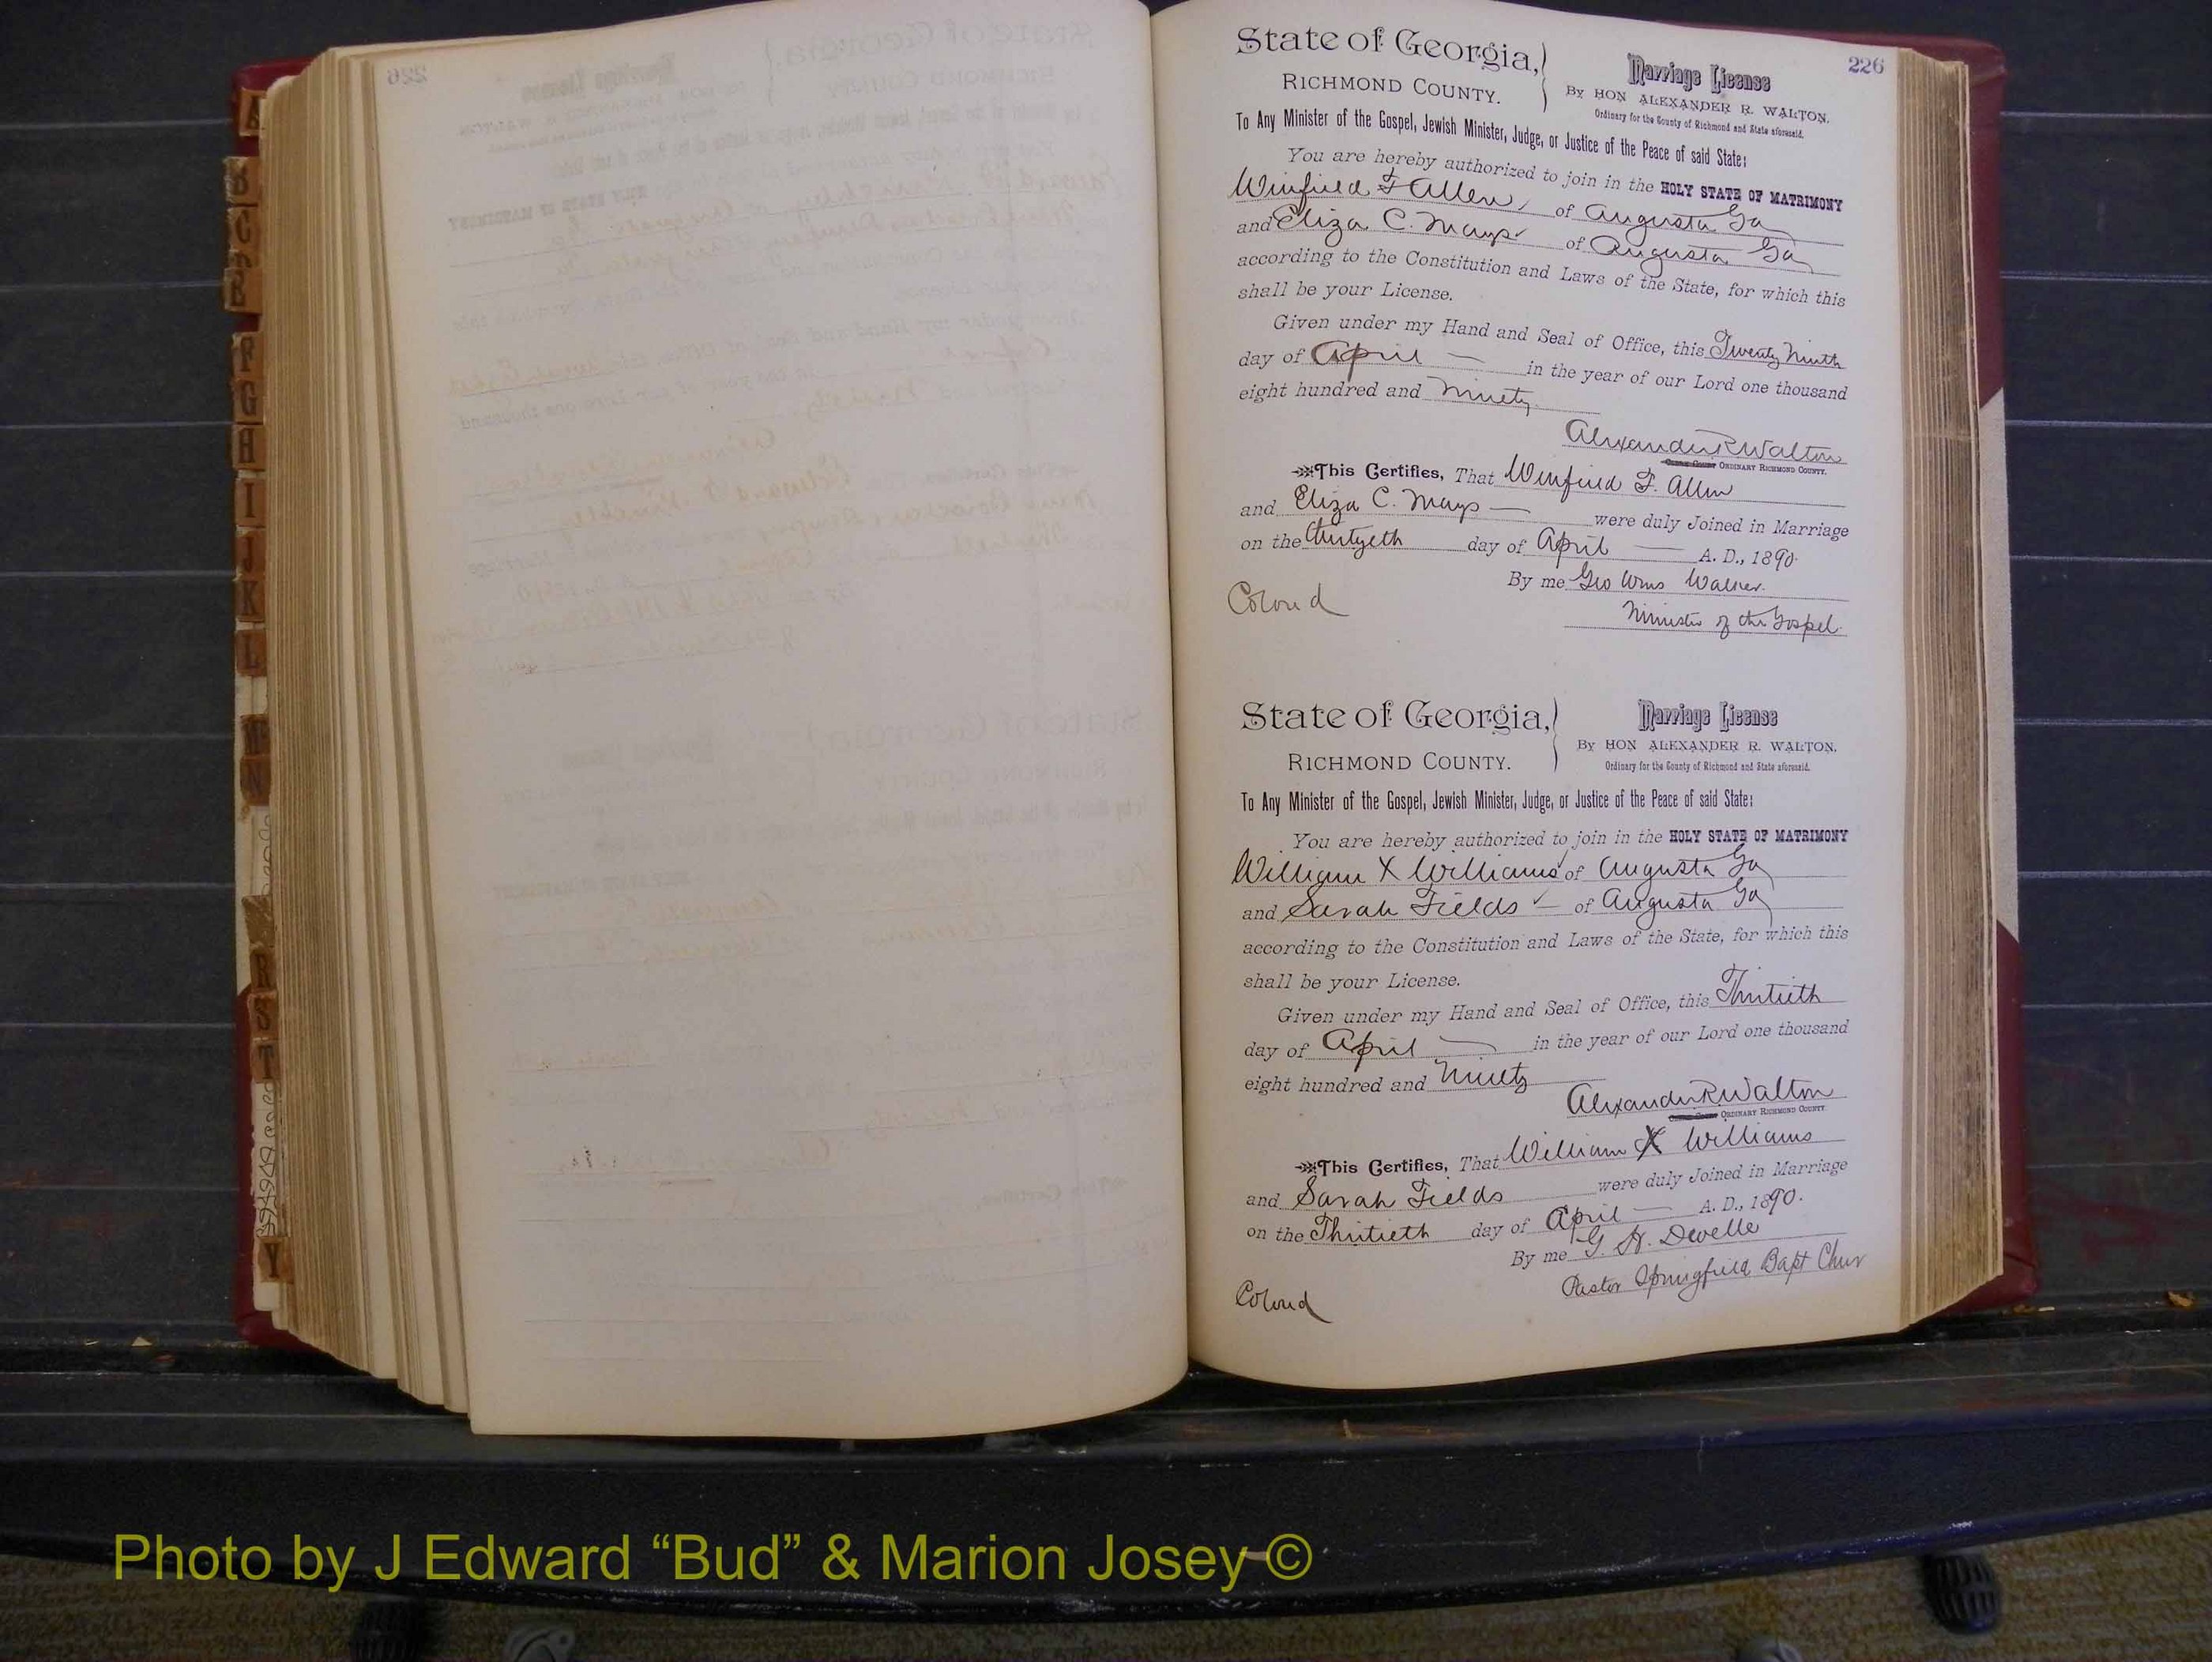 226
State of Georgia,
RICHMOND COUNTY.
Marriage License
By HON ALEXANDER R. WALTON,
Ordinary for the County of Richmond and State aforesaid.
To Any Minister of the Gospel, Jewish Minister, Judge, or Justice of the Peace of said State:
You are hereby authorized to join in the HOLY STATE OF MATRIMONY
Winfield F Allen, of Augusta Ga
and Eliza C. Mays of Augusta Ga
according to the Constitution and Laws of the State, for which this
shall be your License.
Given under my Hand and Seal of Office, this Twenty Ninth
day of April in the year of our Lord one thousand
eight hundred and Ninety.
Alexander R Walton
ORDINARY RICHMOND COUNTY.
This Certifies, That Winfield F. Allen
and Eliza C. Mays were duly Joined in Marriage
on the thirtyeth day of April A. D., 1890.
By me Geo Wms Walker.
Minister of the Gospel.
Colored
State of Georgia,
RICHMOND COUNTY.
Marriage License
By HON ALEXANDER R. WALTON,
Ordinary for the County of Richmond and State aforesaid.
To Any Minister of the Gospel, Jewish Minister, Judge, or Justice of the Peace of said State:
You are hereby authorized to join in the HOLY STATE OF MATRIMONY
William X Williams of Augusta Ga
and Sarah Fields of Augusta Ga
according to the Constitution and Laws of the State, for which this
shall be your License.
Given under my Hand and Seal of Office, this Thirtieth
day of April in the year of our Lord one thousand
eight hundred and Ninety
Alexander R Walton
ORDINARY RICHMOND COUNTY.
This Certifies, That William X Williams
and Sarah Fields were duly Joined in Marriage
on the Thirtieth day of April A. D., 1890.
By me G. H. Dwelle
Pastor Springfield Bapt Chur
Colored
F
G
H
I
J
K
L
N
R
S
T
Y
Photo by J Edward “Bud” & Marion Josey ©